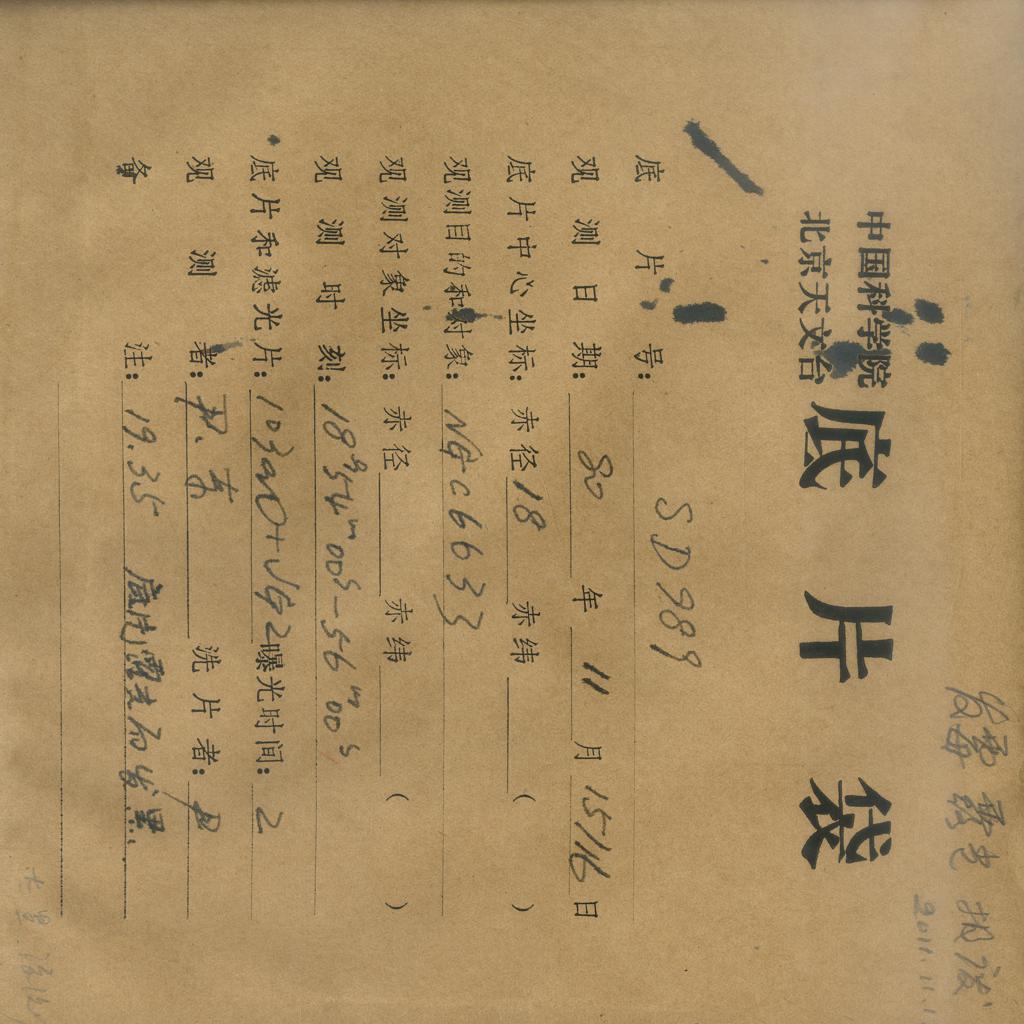 中国科学院
北京天文台
底片袋
底片号: SD989
观测日期: 80年11月15/16日
底片中心坐标: 赤径18 赤纬 ( )
观测目的和对象: NGC6633
观测对象坐标: 赤径 赤纬 ( )
观测时刻: 18h54m00s-56m00s
底片和滤光片: 103aO+JG2 曝光时间: 2
观测者: 洗片者:
备注: 19.35 底片
2011.11.1